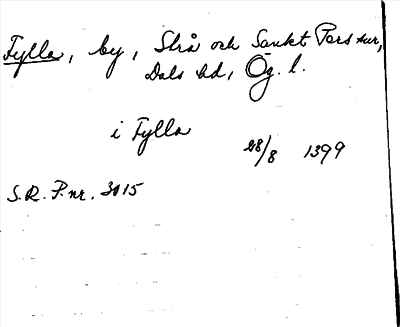 Fylla, by, Strå och Sankt Pers snr,
Dals hd, Ög. l.
i Fylla
28/8 1399
S.R. P.nr. 3015